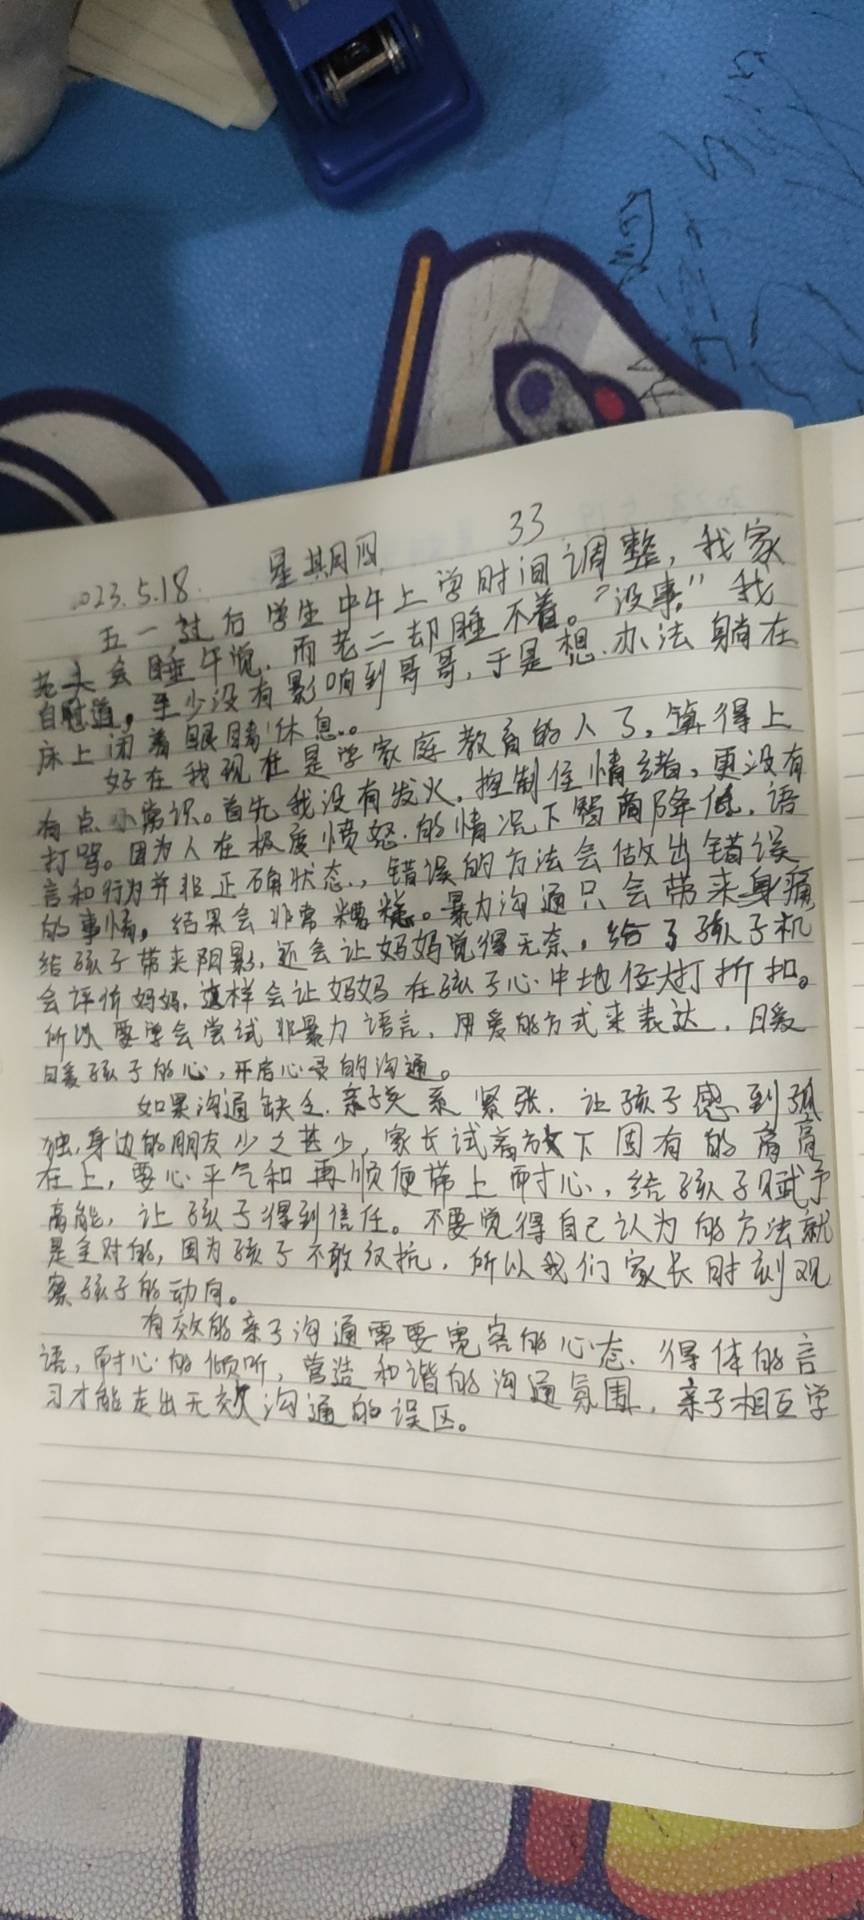 2023.5.18. 星期四 33
五一过后学生中午上学时间调整，我家
老大会睡午觉，而老二却睡不着。"没事，"我
自慰道，至少没有影响到哥哥，于是想办法躺在
床上闭着眼睛休息。
好在我现在是学家庭教育的人了，算得上
有点小常识。首先我没有发火，控制住情绪，更没有
打骂。因为人在极度愤怒的情况下智商降低，语
言和行为并非正确状态，错误的方法会做出错误
的事情，结果会非常糟糕。暴力沟通只会带来身痛
给孩子带来阴影，还会让妈妈觉得无奈，给了孩子机
会评价妈妈，这样会让妈妈在孩子心中地位大打折扣。
所以要学会尝试非暴力语言，用爱的方式来表达，日爱
日爱孩子的心，开启心灵的沟通。
如果沟通缺乏，亲子关系紧张，让孩子感到孤
独，身边的朋友少之甚少，家长试着放下固有的高高
在上，要心平气和再顺便带上耐心，给孩子赋予
高能，让孩子得到信任。不要觉得自己认为的方法就
是全对的，因为孩子不敢反抗，所以我们家长时刻观
察孩子的动向。
有效的亲子沟通需要宽容的心态、得体的言
语，耐心的倾听，营造和谐的沟通氛围，亲子相互学
习才能走出无效沟通的误区。